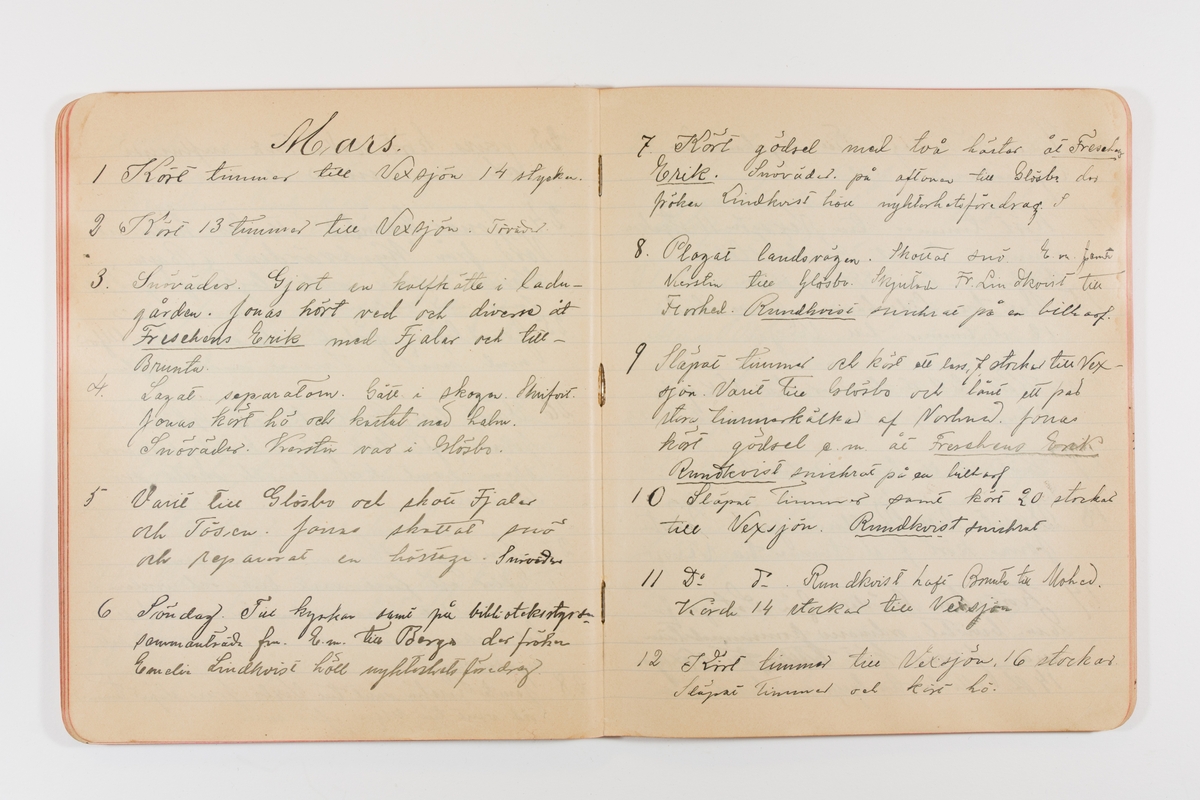 Mars.
1 Kört timmer till Vexsjön 14 stycken.
2 Kört 13 timmer till Vexsjön. Töväder
3. Snöväder. Gjort en kalfkätte i ladu-
gården. Jonas kört ved och diverse åt
Freschens Erik med Fjalar och till-
Brunta.
4. Lagat separatorn. Gått i skogen.
Jonas kört hö och kastat ned halm.
Snöväder. Kerstin var i Glösbo.
5 Varit till Glösbo och skott Fjalar
och Tösen. Jonas skottat snö
och reparerat en höstege. Snöväder
6 Söndag. Till kyrkan samt på biblioteksstyrelse-
sammanträde fm. E.m. till Berga der fröken
Emelie Lindkvist höll nykterhetsföredrag.
7. Kört gödsel med två hästar åt Freschens
Erik. Snöväder. på aftonen till Glösbo der
fröken Lindkvist höll nykterhetsföredrag.
8. Plogat landsvägen. Skottat snö E.m. jemte
Kerstin till Glösbo. Skjutsat Fr. Lindkvist till
Florhed. Rundkvist snickrat på en billharf.
9 Släpat timmer och kört ett lass, 7 stockar till Vex-
sjön. Varit till Glösbo och lånt ett par
timmerkälkar af Norlund. Jonas
kört gödsel e.m. åt Freschens Erik
Rundkvist snickrat på en billharf
10 Släpat timmer samt kört 20 stockar
till Vexsjön. Rundkvist snickrat
11 Do do. Rundkvist haft Brunte till Mohed.
Körde 14 stockar till Vexsjön
12 Kört timmer till Vexsjön. 16 stockar
Släpat timmer och kört hö.